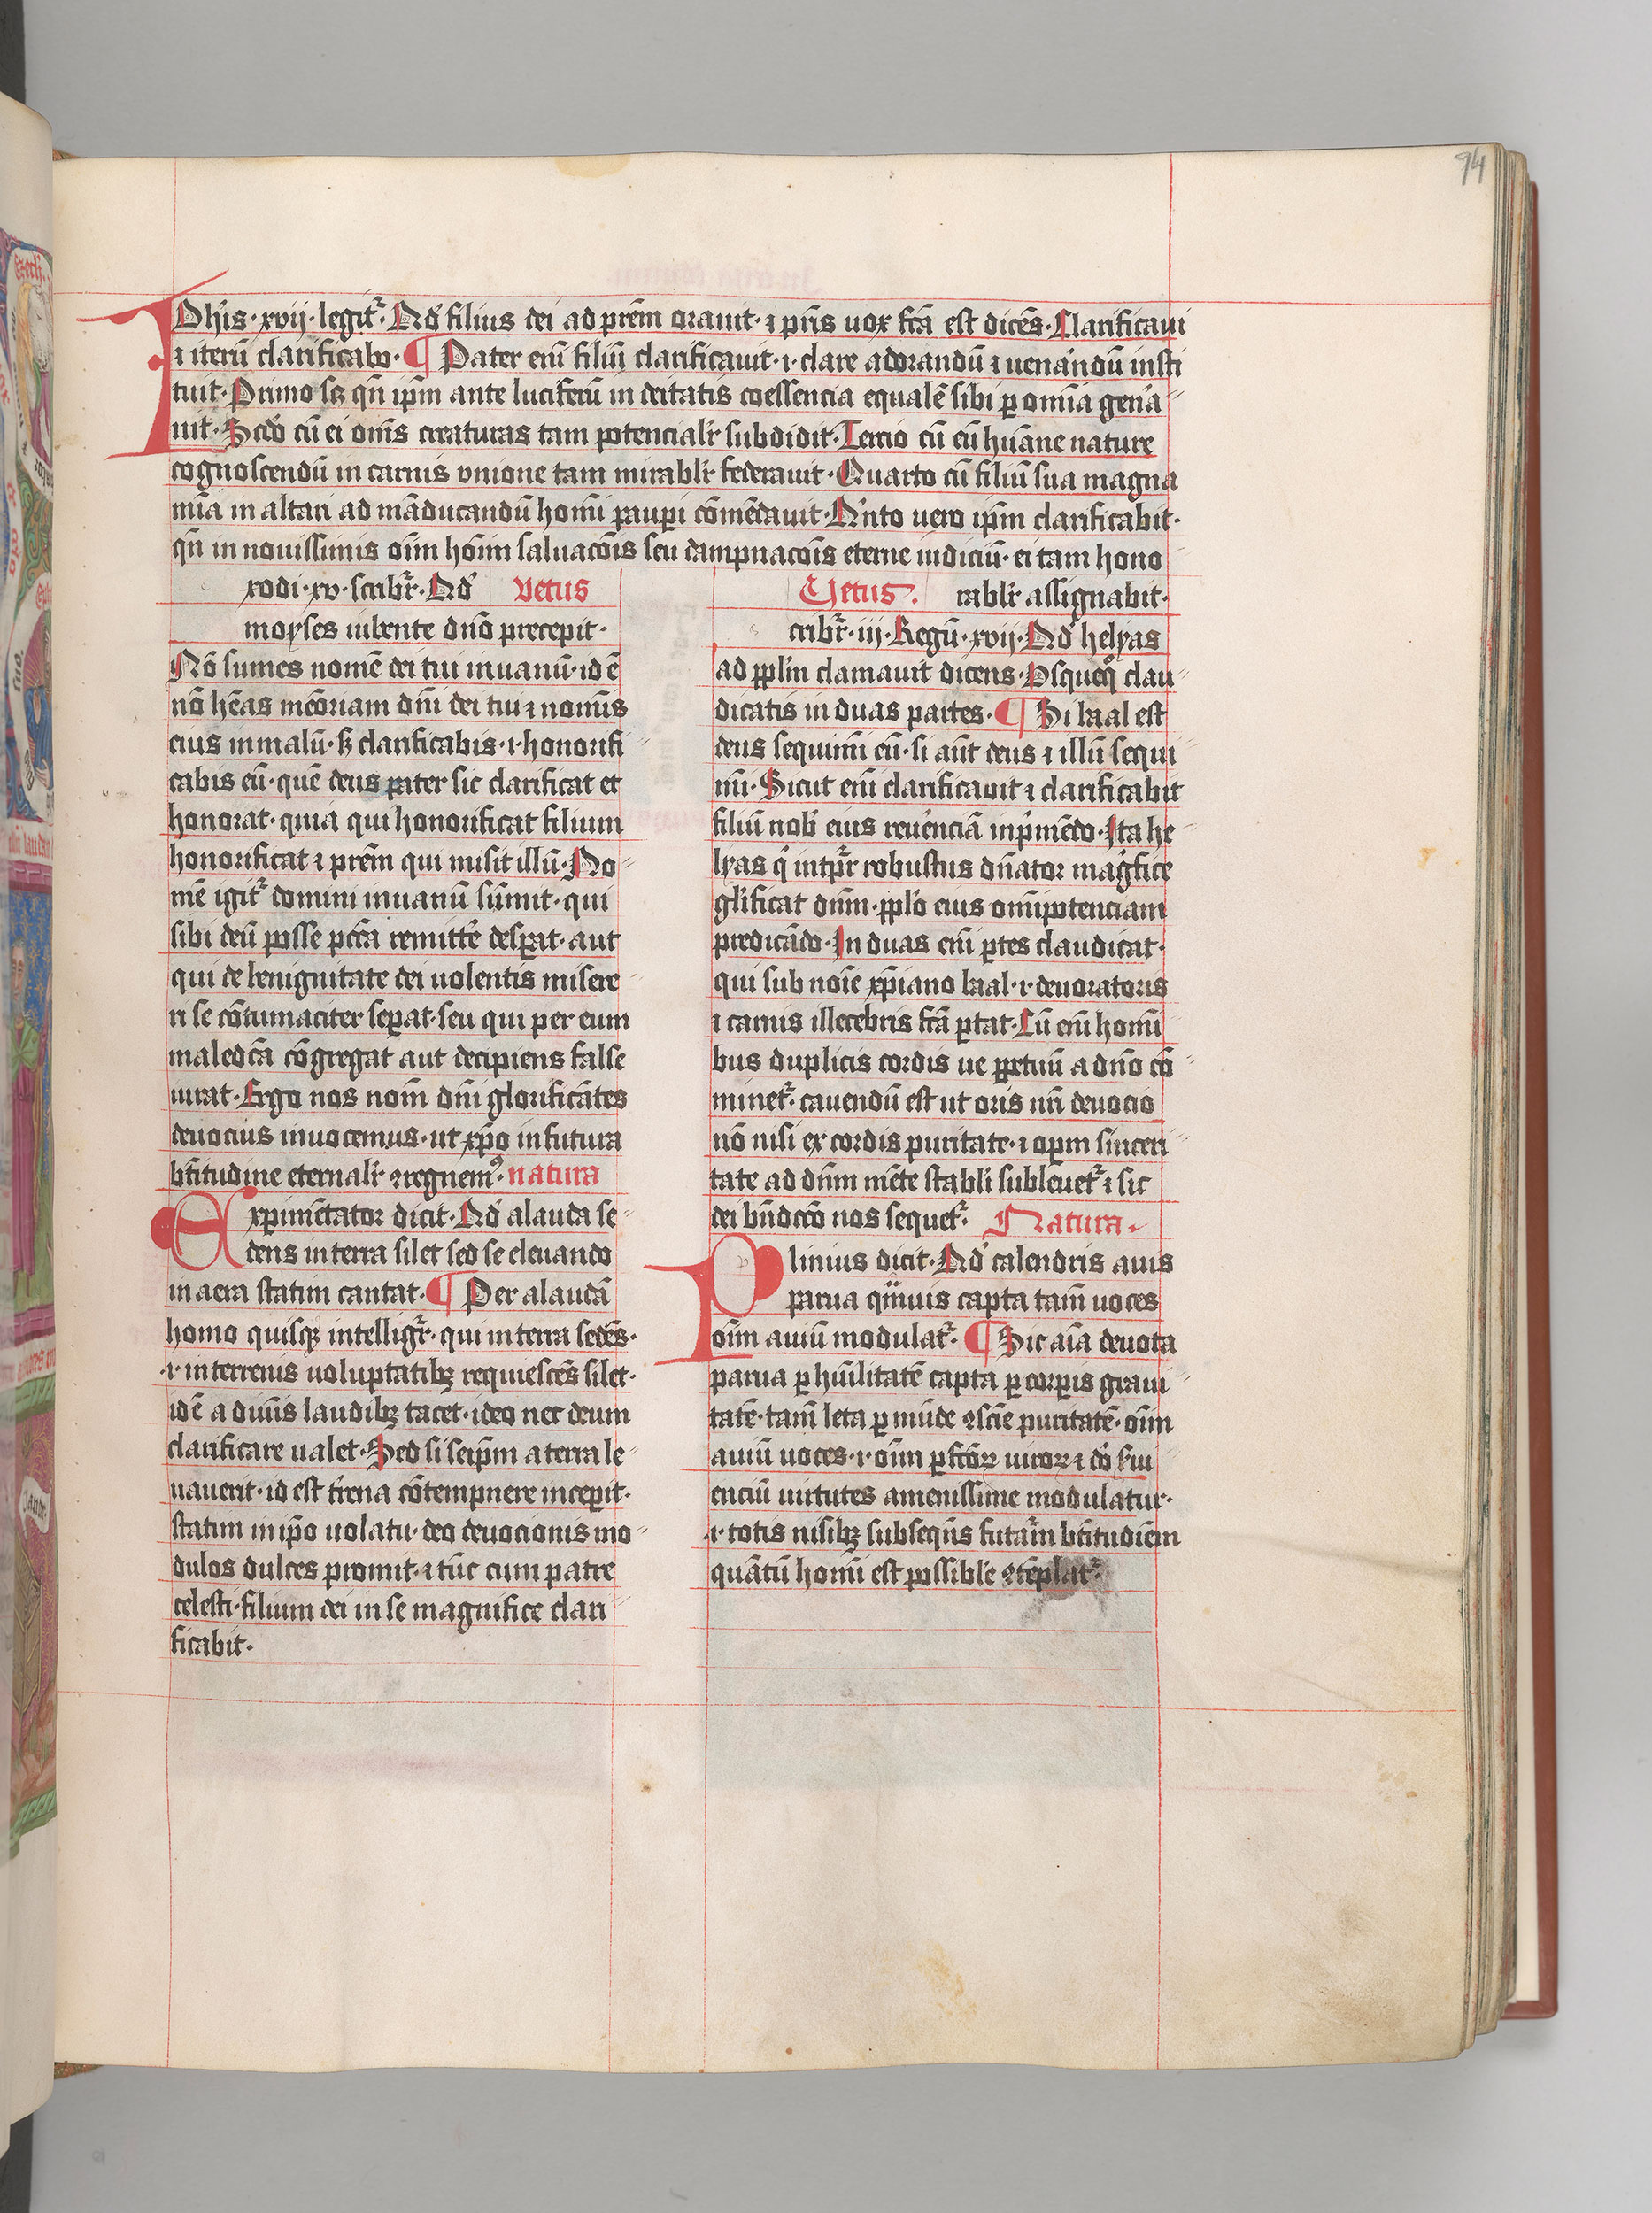 94
IOh̄is · xvij · legit᷑ · Qd' filius dei ad prēm orauit · ⁊ pr̄is uox fcā est dicēs · Clarificaui
⁊ iterū clarificabo · ¶ Pater eni᷑ filiū clarificauit · i · clare adorandū ⁊ uenā'ndū insti
tuit · Primo sꝫ qn̄ ip̄m ante luciferū in deitatis coessencia equalē sibi ꝑ omīa gen'a
uit · Scdo cū ei om̄s creaturas tam potencialr̄ subdidit · Tercio cū eū hūane nature
cognoscendū in carnis vnione tam mirablr̄ federauit · Quarto cū filiū sua magna
mīa in altari ad māducandū homī pauꝑi cōmēdauit · Q'nto uero ip̄m clarificabit ·
qn̄ in nouissimis oīm hoīm saluacōis seu dampnacōis eterne iudiciū · ei tam hono
rablr̄ assignabit ·
vetus
xodi · xv · scribr᷑ · Qd'
moyses iubente dn̄o precepit ·
Nō sumes nomē dei tui inuanū · id ē
nō hēas mēoriam dn̄i dei tui ⁊ nomīs
eius in malū · sꝫ clarificabis · i · honorifi
cabis eū · quē deus pater sic clarificat et
honorat · quia qui honorificat filium
honorificat ⁊ prēm qui misit illū · No
mē igit᷑ domini inuanū sūmit · qui
sibi deū posse pccā remittē desꝑat · aut
qui de benignitate dei uolentis misere
ri se cōtumaciter seꝑat · seu qui per eum
maledcā cōgregat aut decipiens false
iurat · Ergo nos nom̄ dn̄i glorificātes
deuocius inuocemus · ut xp̄o in futura
bt̄itudine eternalr̄ ꝯregnemꝰ · natura
Exꝑimētator dicit · Qd' alauda se
dens in terra silet sed se eleuando
in aera statim cantat · ¶ Per alaudā
homo quisqꝫ intelligr᷑ · qui in terra sedēs ·
· i · in terrenis uoluptatibꝫ requiescēs silet ·
id ē a diuīs laudibꝫ tacet · ideo nec deum
clarificare ualet · Sed si seip̄m a terra le
uauerit · id est t'rena cōtempnere inceꝑit ·
statim in ip̄o uolatu · deo deuocionis mo
dulos dulces promit · ⁊ tūc cum patre
celesti · filium dei in se magnifice clari
ficabit ·
Vetus ·
cribr᷑ · iij · Regū · xvij · Qd' helyas
ad ppl̄m clamauit dicens · Vsqueq̊ clau
dicatis in duas partes · ¶ Si baal est
deus sequimī eū · si aūt deus ⁊ illū sequi
mī · Sicut eni᷑ clarificauit ⁊ clarificabit
filiū nob' eius reu'enciā inp'mēdo · Ita he
lyas q' intp̄r᷑ robustus dn̄ator mag'fice
gl'ificat dn̄m · ppl̄o eius omīpotenciam
predicādo · In duas eni᷑ ꝑtes claudicat ·
qui sub noīe xp̄iano baal · i · deuoratoris
⁊ carnis illecebris fcā ꝑtat · Cū eni᷑ homī
bus duplicis cordis ue ꝑpetuū a dn̄o cō
minet᷑ · cauendū est ut oris nr̄i deuocio
nō nisi ex cordis puritate · ⁊ oꝑm sinceri
tate ad dn̄m mēte stabli subleuet᷑ ⁊ sic
dei bn̄dccō nos sequet᷑ · Natura ·
Plinius dicit · Qd' calendris auis
parua q̄muis capta tam̄ uoces
oīm auiū modulat᷑ · ¶ Sic aīa deuota
parua ꝑ hūilitatē capta ꝑ corꝑis graui
tatē · tam̄ leta ꝑ mūde ꝯsciē puritatē · oīm
auiū uoces · i · oīm ꝑfcōꝝ uiroꝝ ⁊ dō s'ui
enciū uirtutes amenissime modulatur ·
· i · totis nisibꝫ subseqn̄s futar̄m bt̄itudiēm
quātū homī est possible ꝯtēplat᷑ ·